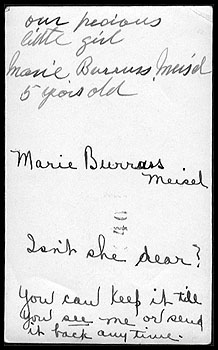 our precious
little girl
Marie Burruss Meisel
5 years old
Marie Burruss
Meisel
Isn't she dear?
You can keep it till
you see me or send
it back any time.